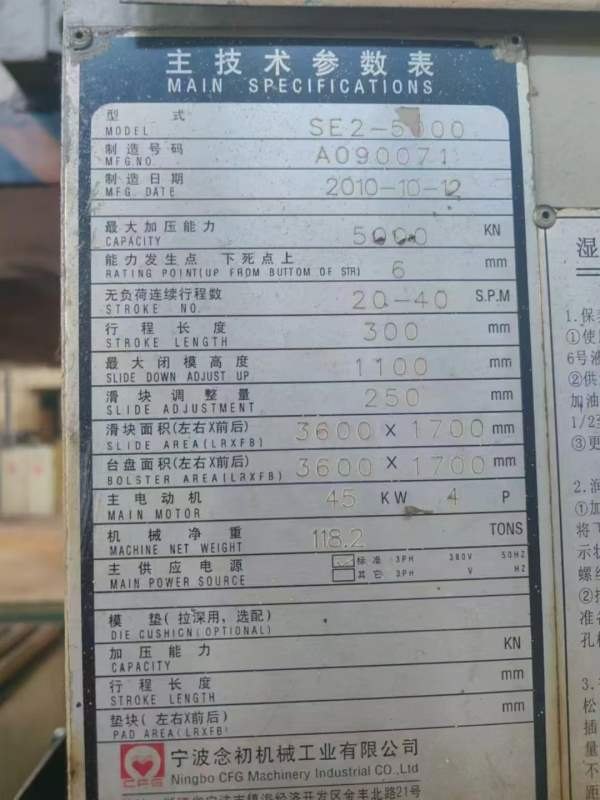 主技术参数表
MAIN SPECIFICATIONS
型 式
MODEL SE2-5000
制造号码
MFG.NO. A090071
制造日期
MFG. DATE 2010-10-12
最大加压能力
CAPACITY 5000 KN
能力发生点 下死点上
RATING POINT(UP FROM BUTTOM OF STR) 6 mm
无负荷连续行程数
STROKE NO. 20-40 S.P.M
行程长度
STROKE LENGTH 300 mm
最大闭模高度
SLIDE DOWN ADJUST UP 1100 mm
滑块调整量
SLIDE ADJUSTMENT 250 mm
滑块面积(左右X前后)
SLIDE AREA(LRXFB) 3600 X 1700 mm
台盘面积(左右X前后)
BOLSTER AREA(LRXFB) 3600 X 1700 mm
主电动机
MAIN MOTOR 45 KW 4 P
机械净重
MACHINE NET WEIGHT 118.2 TONS
主供应电源 标准 3PH 380V 50HZ
MAIN POWER SOURCE 其它 3PH V HZ
模 垫(拉深用，选配)
DIE CUSHICN(OPTIONAL)
加压能力
CAPACITY KN
行程长度
STROKE LENGTH mm
垫块(左右X前后)
PAD AREA(LRXFB) mm
CFG
宁波念初机械工业有限公司
Ningbo CFG Machinery Industrial CO.,Ltd
宁波市镇海经济开发区金丰北路21号
湿
1.保
①使
6号液
②供
加油
1/2
③更
2.润
①加
将下
示状
螺丝
②
准备
孔
3.
松
插
量
不
距